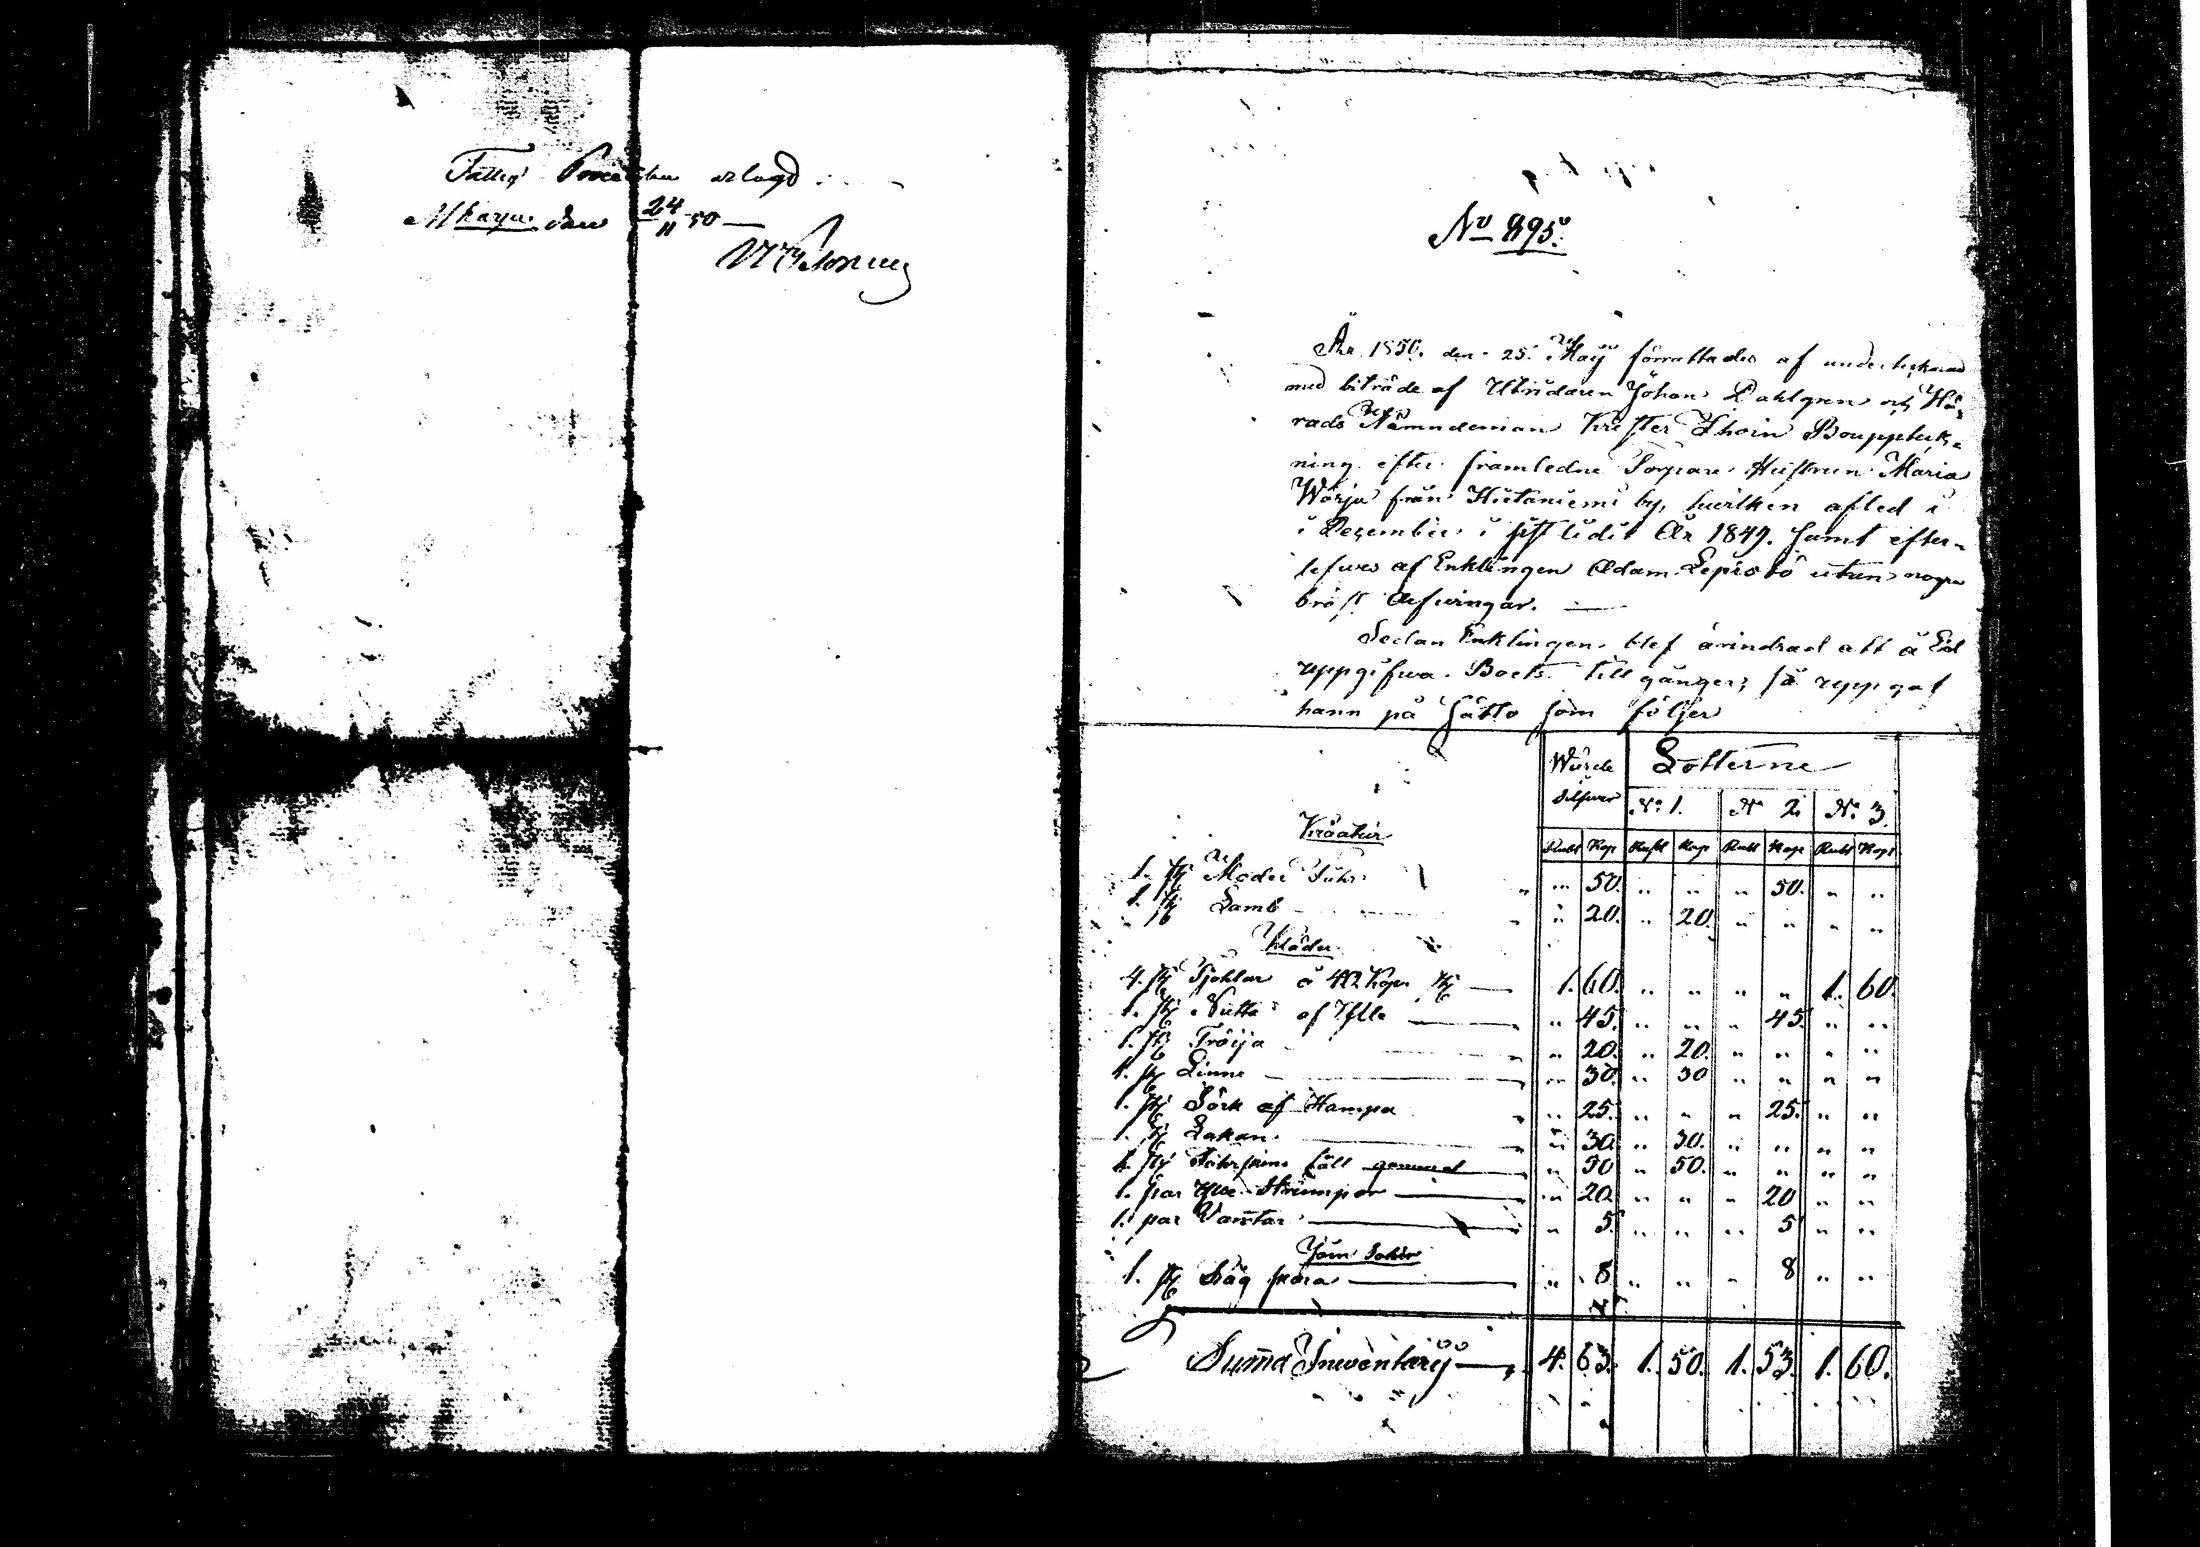 Fattig Procenten erlagd
Alkarya den 24/11 50
No 895.
År 1850. den 25. Maÿ förrättades af undertecknad
med biträde af Utridaren Johan Dahlgren och Hä-
rads Nämndeman Krister Thoin Bouppteck-
ning efter framledne Torpare Hustrun Maria
Wörja från Hietaniemi by, hwilken afled i
i December i sistledit År 1849. samt efter-
lefwes af Enklingen Adam Lepistö utan nogra
bröst Arfwingar.
Sedan Enklingen blef ärindrad att å Ed
uppgifwa Boets tillgånger, så uppgaf
hann på sätto som följer
Wärde Silfwer Lotterne
No 1. No 2 No 3.
Rubl Kop Rubl Kop Rubl Kop Rubl Kop
Kreatur
1. st Moder Fåhr " 50. " " " 50. " "
1. st Lamb " 20. " 20. " " " "
Kläder
4. st Kjohlar å 40 Kop st 1. 60. " " " " 1. 60.
1. st Nutta af Ylle " 45. " " " 45. " "
1. st Tröija " 20. " 20. " " " "
1. st Linne " 30. " 30 " " " "
1. st Särk af Hampa " 25. " " " 25. " "
1. st Lakan " 30. " 30. " " " "
1. st Fåhrskins fäll gammal " 50 " 50. " " " "
1. par Ylle Strumpor " 20. " " " 20 " "
1. par Vantar " 5. " " " 5 " "
Järn Saker
1. st Såg skära " 8 " " " 8 " "
Summa Inwentarÿ 4. 63. 1. 50. 1. 53. 1. 60.